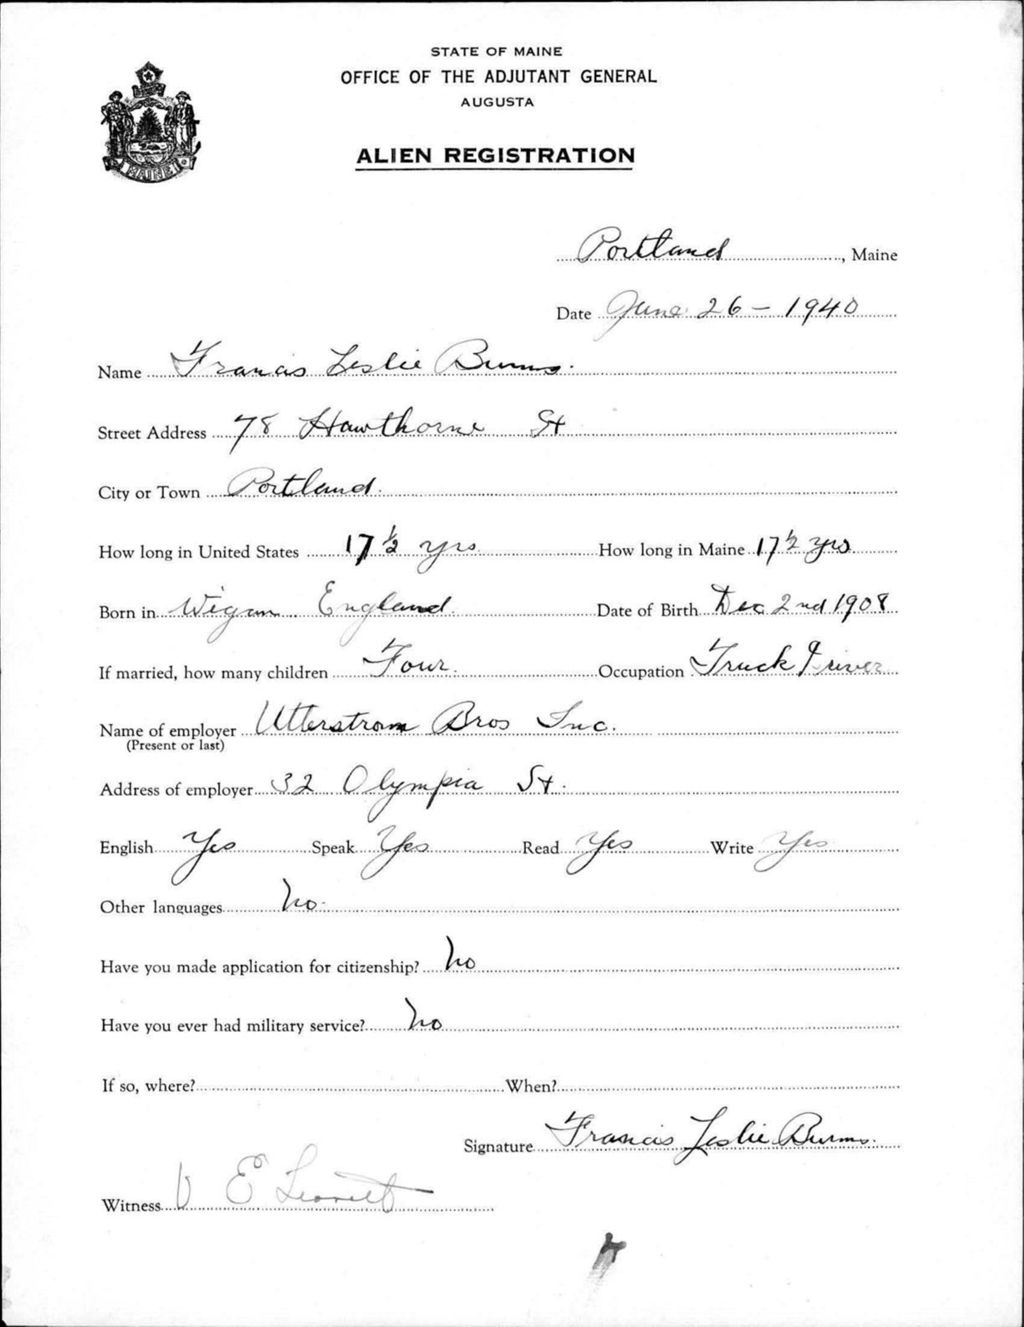 STATE OF MAINE
OFFICE OF THE ADJUTANT GENERAL
AUGUSTA
ALIEN REGISTRATION
MAINE
Portland, Maine
Date June 26 - 1940
Name Francis Leslie Burns.
Street Address 78 Hawthorne St
City or Town Portland.
How long in United States 17 1/2 yrs. How long in Maine 17 1/2 yrs
Born in Wigan England. Date of Birth Dec 2nd 1908
If married, how many children Four. Occupation Truck Driver
Name of employer Utterstrom Bros Inc.
(Present or last)
Address of employer 32 Olympia St.
English Yes Speak Yes Read Yes Write Yes
Other languages No.
Have you made application for citizenship? No
Have you ever had military service? No
If so, where? When?
Signature Francis Leslie Burns.
Witness E